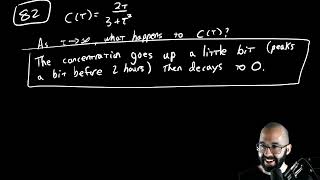 82
C(T) = 2T / 3 + T²
As T → ∞, what happens to C(T)?
The concentration goes up a little bit (peaks
a bit before 2 hours) then decays to 0.